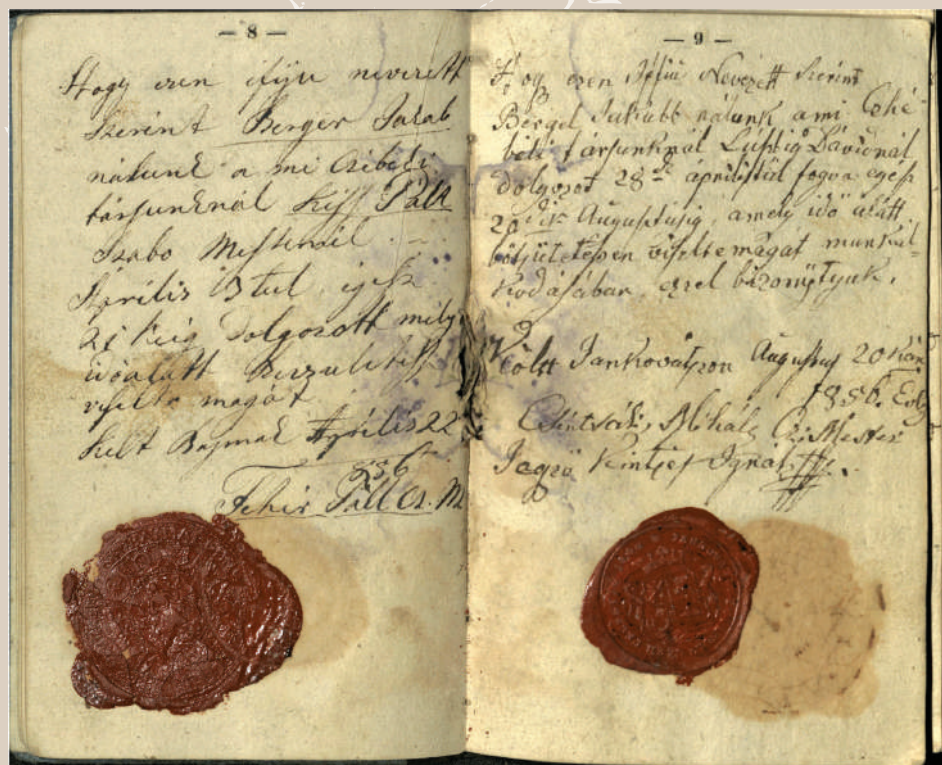 — 8 —
Hogy ezen ifiju nevezett
szerint Berger Jakab
nálunk a mi Czibeli
társunknál Kiss Páll
Szabo Mesternél
Április 13tul igész
21 keig dolgozott mely
üdőalatt
viselte magát
kelt Bajmak Április 22
856
Fehér Páll Cz. M.
— 9 —
Hogy ezen Ifjui Nevezett szerint
Bergel Jakubb nálunk a mi Czhé-
beli társunknál Lustig Dávidnál
dolgozot 28 áprilistül fogva egész
20 Augustusig, amely idő alatt
viselte magát munkál-
kodásában, ezzel bizonyityuk.
Költ Jankovátzon Augustus 20
1856. Evb
Mihály Cz. Mester
Jegző Ignátz